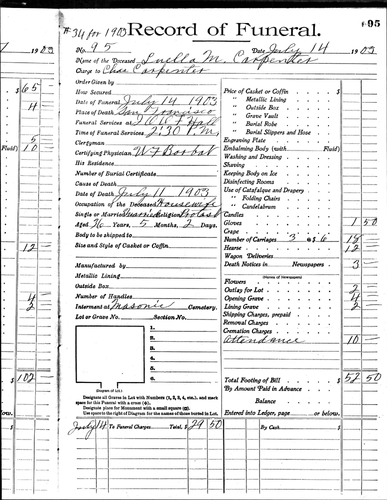 #34 for 1903 Record of Funeral. 95
1903
No. 95 Date July 14 1903
Name of the Deceased Luella M. Carpenter
Charge to Chas Carpenter
Order Given by
Hour Secured
Date of Funeral July 14 1903
Place of Death San Francisco
Funeral Services at Hall
Time of Funeral Services 2:30 P.M.
Clergyman
Certifying Physician W F
His Residence
Number of Burial Certificate
Cause of Death
Date of Death July 11 1903
Occupation of the Deceased Housewife
Single or Married Married Religion
Aged 26 Years, 5 Months, 2 Days.
Body to be shipped to
Size and Style of Casket or Coffin
Manufactured by
Metallic Lining
Outside Box
Number of Handles
Interment at Masonic Cemetery.
Lot or Grave No. Section No.
1.
2.
3.
4.
5.
6.
(Diagram of Lot.)
Designate all Graves in Lot with Numbers (1, 2, 3, 4, etc.), and mark space for this Funeral with a cross (+).
Designate place for Monument with a small square (□).
Use spots to the right of Diagram for the names of those buried in Lot.
July 14 To Funeral Charges Total, $ 29 50
Price of Casket or Coffin $
" Metallic Lining
" Outside Box
" Grave Vault
" Burial Robe
" Burial Slippers and Hose
Engraving Plate
Embalming Body (with Fluid)
Washing and Dressing
Shaving
Keeping Body on Ice
Disinfecting Rooms
Use of Catafalque and Drapery
" Folding Chairs
" Candelabrum
Candles
Gloves 1 50
Crape
Number of Carriages 3 @ $6 18
Hearse 12
Wagon Deliveries
Death Notices in Newspapers 3
(Names of Newspapers)
Flowers
Outlay for Lot 2
Opening Grave 4
Lining Grave 2
Shipping Charges, prepaid
Removal Charges
Cremation Charges
Attendance 10
Total Footing of Bill 52 50
By Amount Paid in Advance
Balance
Entered into Ledger, page or below.
By Cash $
$ 65
4
5
Fluid) 10
12
4
2
$ 102